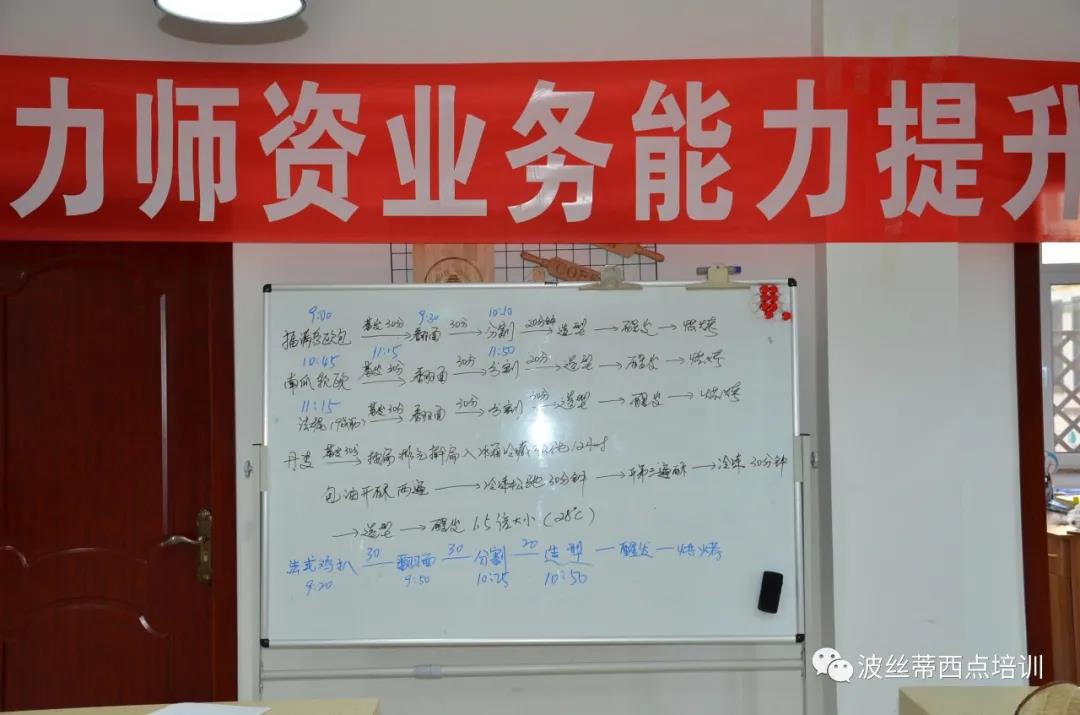 力师资业务能力提升
COFFEE
9:00 9:30 10:10
欧包 基发30分 翻面 30分 分割 20分钟 造型 醒发 烘烤
10:45 11:15 11:50
南瓜软欧 基发30分 翻面 30分 分割 20分 造型 醒发 烘烤
11:15
法棍 基发30分 翻面 30分 分割 30分 造型 醒发 烘烤
丹麦 基发30分 排气擀扁入冰箱冷藏松弛12小时
包油开酥两遍 冷冻松弛30分钟 开第三遍酥 冷冻30分钟
造型 醒发1.5倍大小(28℃)
法式鸡扒 30 翻面 30 分割 20 造型 醒发 烘烤
9:20 9:50 10:25 10:50
波丝蒂西点培训